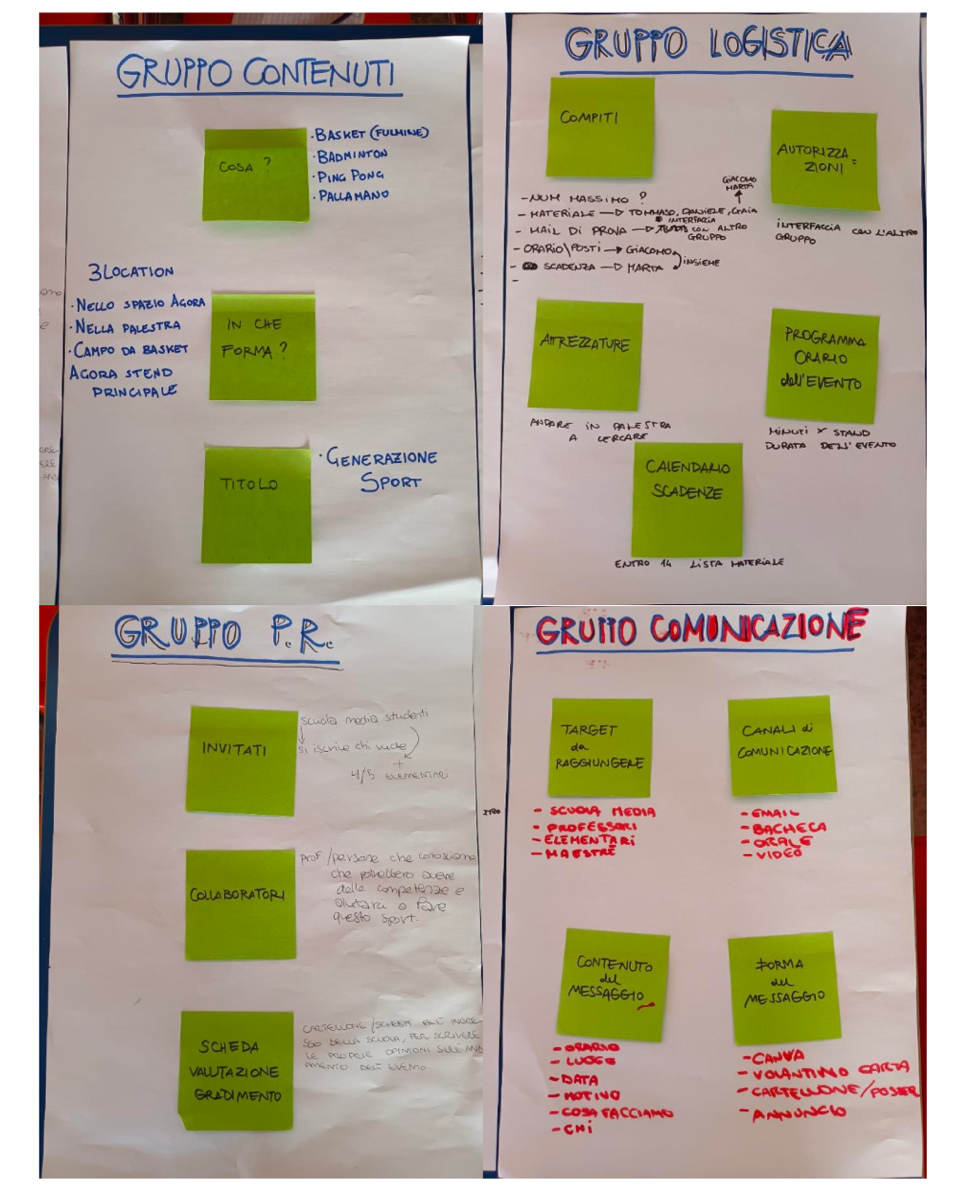 GRUPPO CONTENUTI
COSA ?
· BASKET (FULMINE)
· BADMINTON
· PING PONG
· PALLAMANO
3 LOCATION
· NELLO SPAZIO AGORA
· NELLA PALESTRA
· CAMPO DA BASKET
AGORA STEND
PRINCIPALE
IN CHE
FORMA ?
TITOLO
· GENERAZIONE
SPORT
GRUPPO LOGISTICA
COMPITI
AUTORIZZA
ZIONI
INTERFACCIA CON L'ALTRO
GRUPPO
GIACOMO
MARTA
- NUM MASSIMO ?
- MATERIALE → TOMMASO, DANIELE, GAIA
- MAIL DI PROVA → INTERFACCIA
CON ALTRO
GRUPPO
- ORARIO\POSTI → GIACOMO
- SCADENZA → MARTA
INSIEME
-
ATTREZZATURE
ANDARE IN PALESTRA
A CERCARE
PROGRAMMA
ORARIO
dell'EVENTO
MINUTI X STAND
DURATA DELL'EVENTO
CALENDARIO
SCADENZE
ENTRO 14 LISTA MATERIALE
GRUPPO P.R.
INVITATI
scuola media studenti
↓
si iscrive chi vuole
+
4/5 ELEMENTARI
COLLABORATORI
prof/persone che conosciamo
che potrebbero avere
delle competenze e
aiutarci a fare
questo sport.
SCHEDA
VALUTAZIONE
GRADIMENTO
CARTELLONE/SCHEDA ALL'INGRE-
SSO DELLA SCUOLA, PER SCRIVERE
LE PROPRIE OPINIONI SULL'AND
AMENTO DELL'EVENTO
GRUPPO COMUNICAZIONE
TARGET
da
RAGGIUNGERE
- SCUOLA MEDIA
- PROFESSORI
- ELEMENTARI
- MAESTRE
CANALI di
COMUNICAZIONE
- EMAIL
- BACHECA
- ORALE
- VIDEO
CONTENUTO
del
MESSAGGIO
- ORARIO
- LUOGO
- DATA
- MOTIVO
- COSA FACCIAMO
- CHI
FORMA
del
MESSAGGIO
- CANVA
- VOLANTINO CARTA
- CARTELLONE/POSTER
- ANNUNCIO